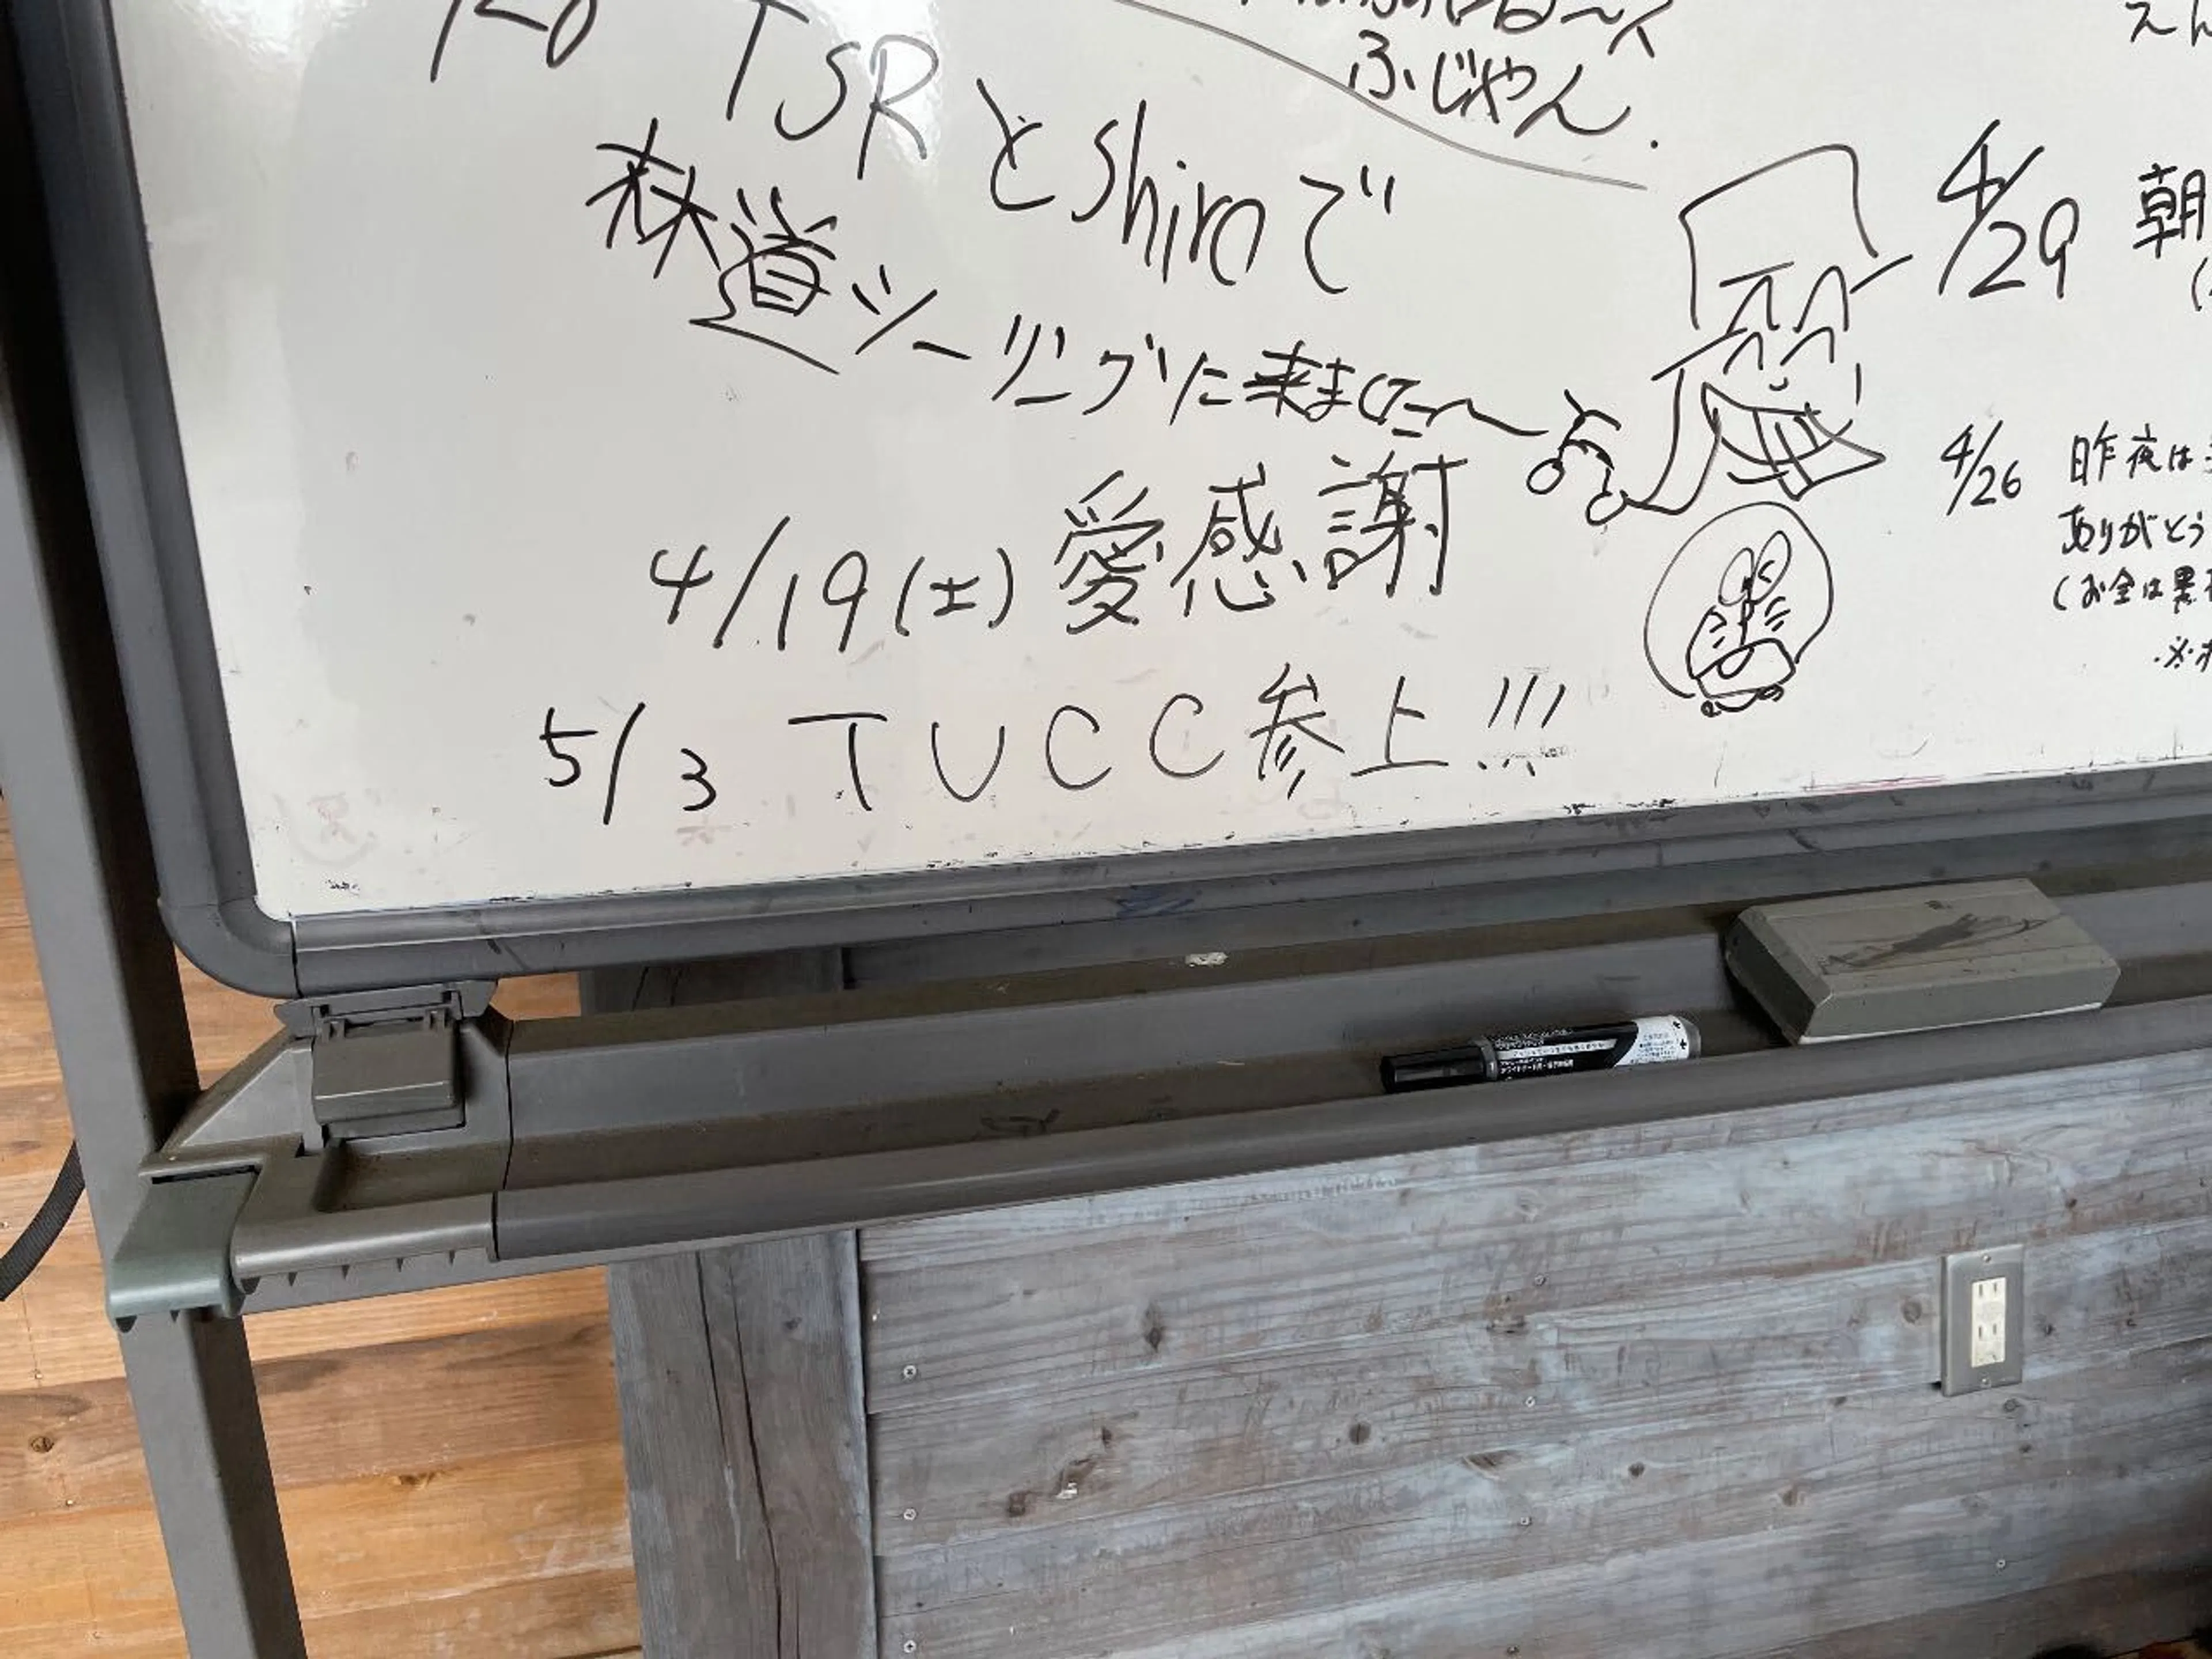 TSRとshiroで
林道ツーリングに来ました〜
4/19(土) 愛感謝
5/3 TUCC参上!!!
ふじやん.
4/29 朝
4/26 昨夜は
ありがとう
(お金は